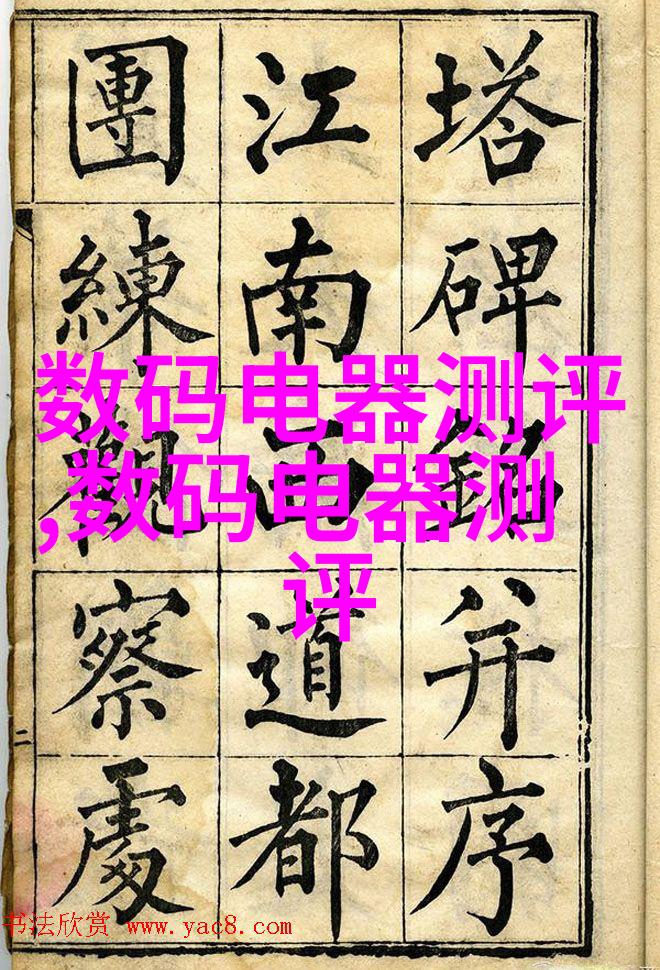 塔碑銘并序
江南西道都
團練觀察處
二
数码电器测评
,数码电器测
评
书法欣赏 www.yac8.com